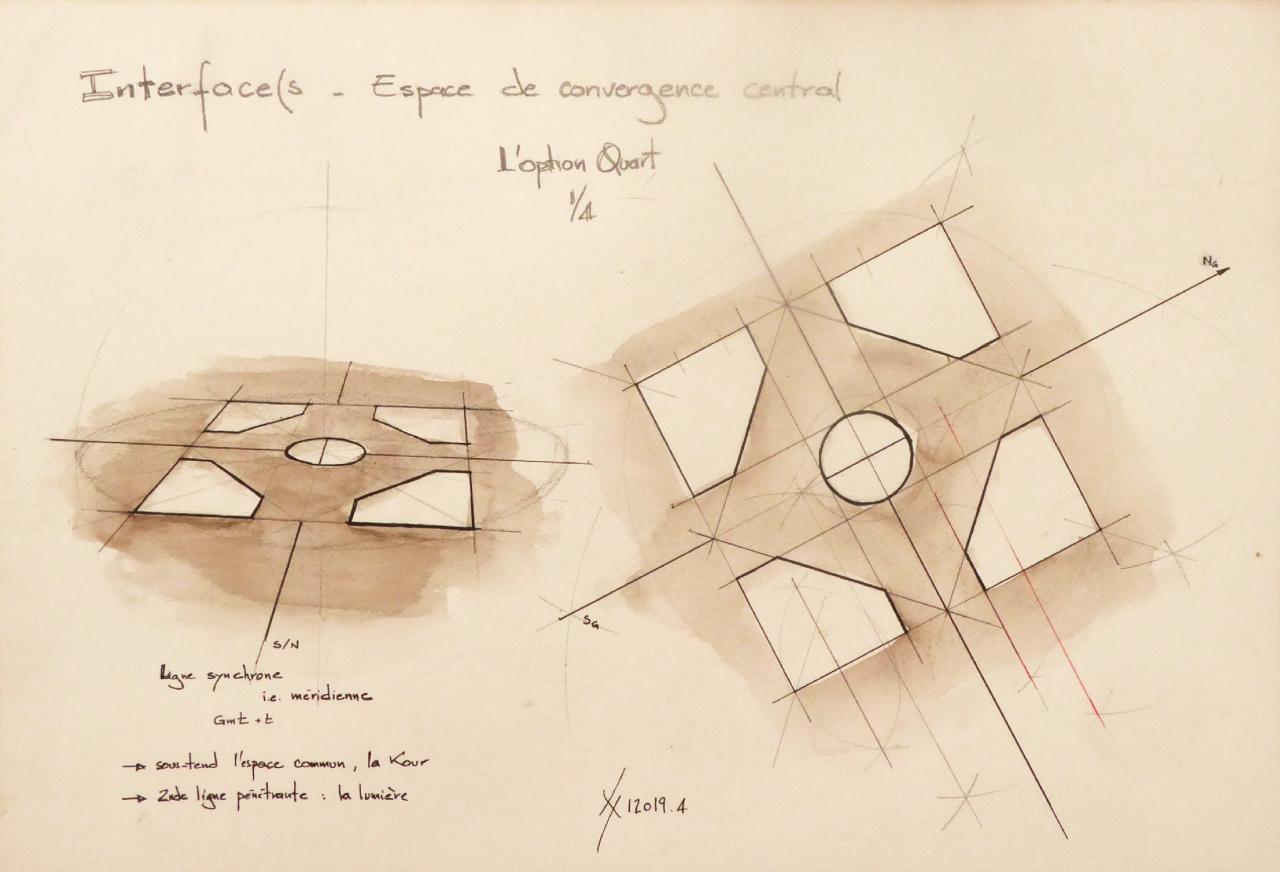 Interface(s - Espace de convergence central
L'option Quart
1/4
NG
SG
S/N
Ligne synchrone
i.e. méridienne
Gmt +t
→ sous-tend l'espace commun, la Kour
→ 2nde ligne pénétrante : la lumière
12019.4